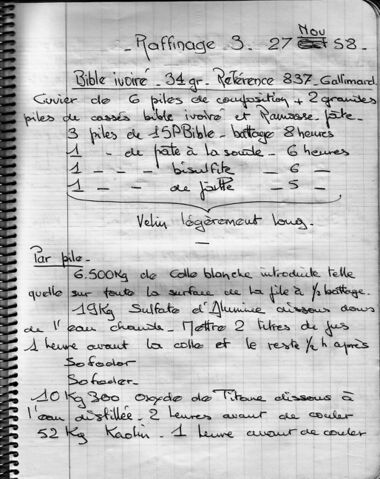 - Raffinage 3. 27 Nov 58.
Bible ivoiré - 34 gr. Référence 837 - Gallimard.
Cuvier de 6 piles de composition + 2 grandes
piles de cassés bible ivoiré et Ramasse pâte.
3 piles de 1SPBible - battage 8 heures
1 - de pâte à la soude - 6 heures
1 - - - bisulfite - 6 -
1 - - de paille - 5 -
Velin légèrement long.
Par pile -
6.500Kg de colle blanche introduite telle
quelle sur toute la surface de la pile à ½ battage.
19Kg Sulfate d'Alumine dissous dans
de l'eau chaude - Mettre 2 litres de jus
1 heure avant la colle et le reste ½ h après
Sofador
Sofader -
10 Kg 300 Oxyde de Titane dissous à
l'eau distillée 2 heures avant de couler
52 Kg Kaolin - 1 heure avant de couler